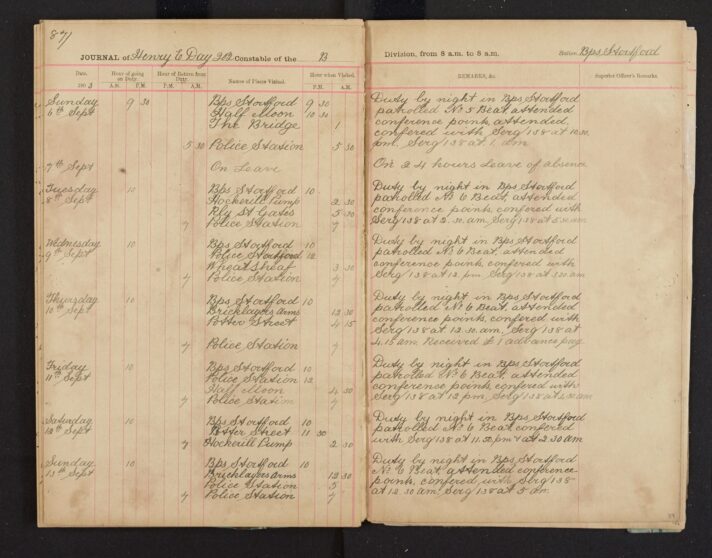 87
JOURNAL of Henry E Day 313 Constable of the B
Date. Hour of going on Duty. Hour of Return from Duty. Names of Places Visited. Hour when Visited.
190 3 A.M. P.M. P.M. A.M. P.M. A.M.
Sunday 9 30 Bps Stortford 9 30
6th Sept Half Moon 10 30
The Bridge 1
5 30 Police Station 5 30
7th Sept On Leave
Tuesday 10 Bps Stortford 10
8th Sept Hockerill Pump 2 30
Rly St Gates 5 30
7 Police Station 7
Wednesday 10 Bps Stortford 10
9th Sept Police Stortford 12
Wheatsheaf 3 30
7 Police Station 7
Thursday 10 Bps Stortford 10
10th Sept Bricklayers Arms 12 30
Potter Street 4 15
7 Police Station 7
Friday 10 Bps Stortford 10
11th Sept Police Station 12
Half Moon 4 30
7 Police Station 7
Saturday 10 Bps Stortford 10
12th Sept Potter Street 11 30
7 Hockerill Pump 2 30
Sunday 10 Bps Stortford 10
13th Sept Bricklayers Arms 12 30
Police Station 5
7 Police Station 7
Division, from 8 a.m. to 8 a.m. Station Bps Stortford
REMARKS, &c. Superior Officer's Remarks
Duty by night in Bps Stortford
patrolled No 5 Beat, attended
conference points, attended,
confered with Serg 138 at 10.30
am, Serg 138 at 1 am
On 24 hours Leave of absence
Duty by night in Bps Stortford
patrolled No 6 Beat, attended
conference points, confered with
Serg 138 at 2.30 am, Serg 138 at 5.30 am
Duty by night in Bps Stortford
patrolled No 6 Beat, attended
conference points, confered with
Serg 138 at 12 pm. Serg 138 at 3.30 am
Duty by night in Bps Stortford
patrolled No 6 Beat, attended
conference points, confered with
Serg 138 at 12.30 am, Serg 138 at
4.15 am. Received £1 advance pay
Duty by night in Bps Stortford
patrolled No 6 Beat, attended
conference points, confered with
Serg 138 at 12 pm, Serg 138 at 4.30 am
Duty by night in Bps Stortford
patrolled No 6 Beat, confered
with Serg 138 at 11.30 pm & at 2.30 am
Duty by night in Bps Stortford
No 6 Beat, attended conference
points, confered, with Serg 138
at 12.30 am, Serg 138 at 5 am